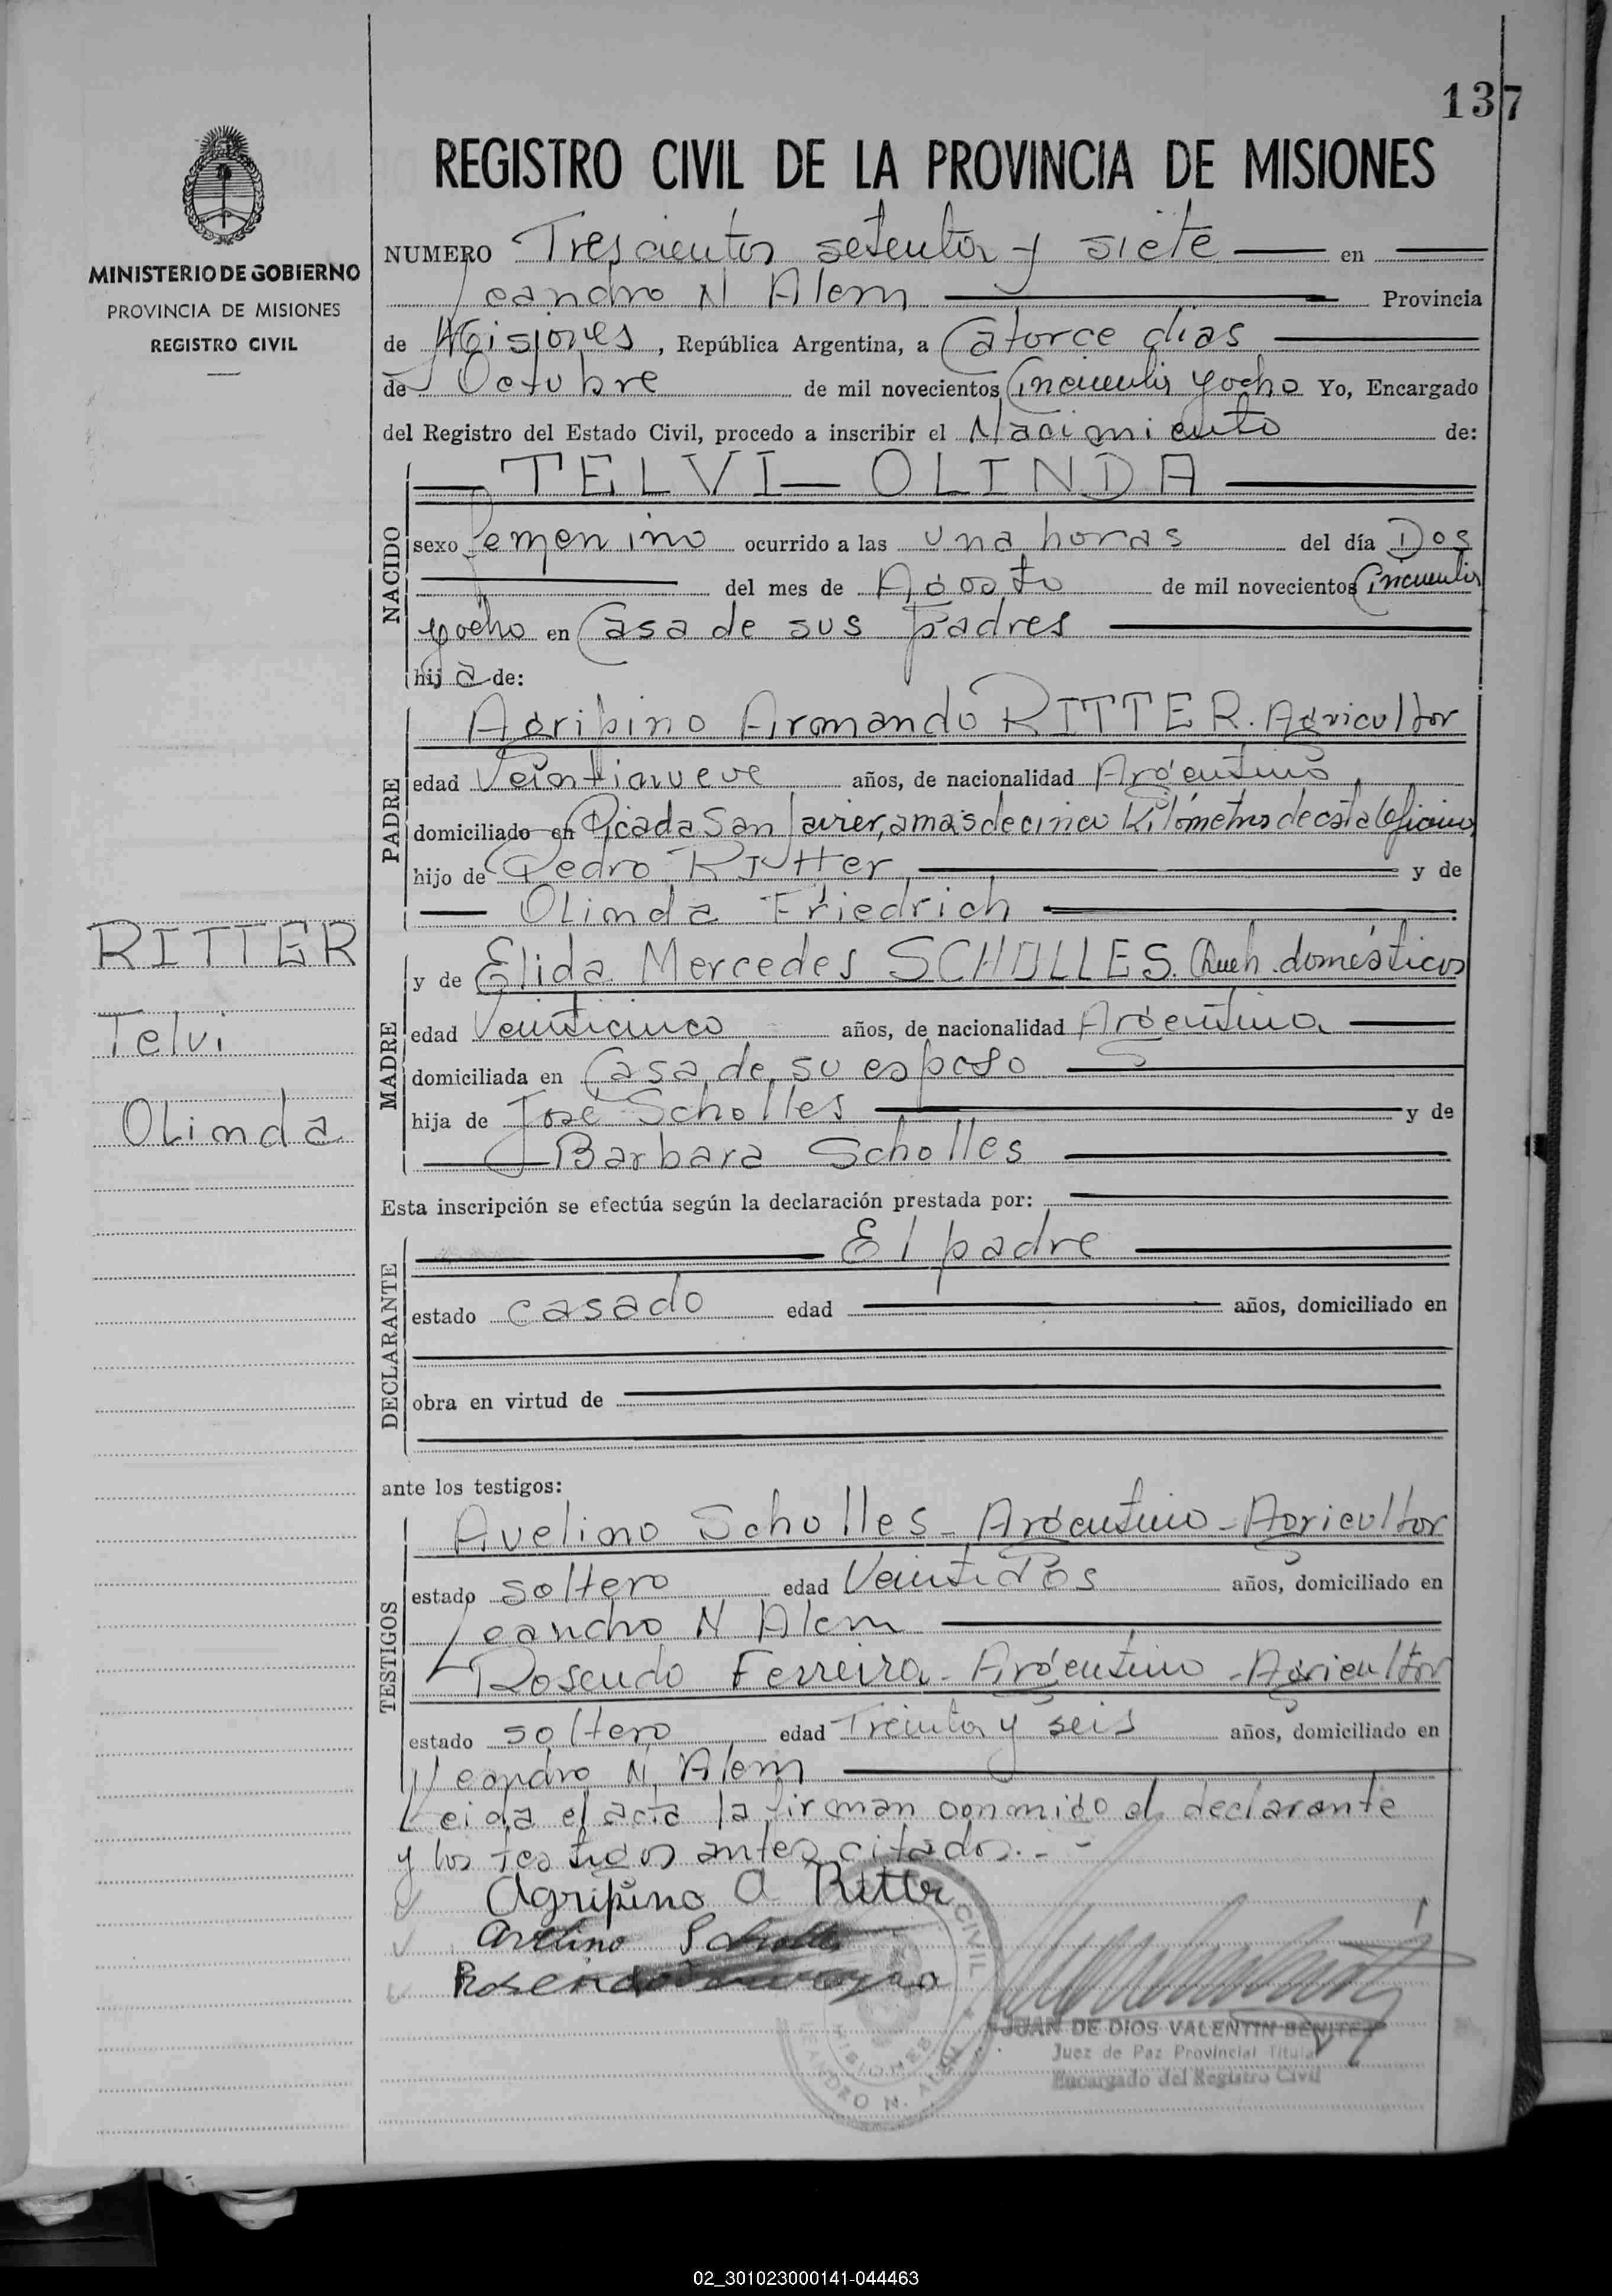 137
REGISTRO CIVIL DE LA PROVINCIA DE MISIONES
MINISTERIO DE GOBIERNO
PROVINCIA DE MISIONES
REGISTRO CIVIL
NUMERO Trescientos setenta y siete en
Leandro N Alem Provincia
de Misiones, República Argentina, a Catorce dias
de Octubre de mil novecientos Cincuenta yocho Yo, Encargado
del Registro del Estado Civil, procedo a inscribir el Nacimiento de:
NACIDO
TELVI OLINDA
sexo femenino ocurrido a las una horas del día Dos
del mes de Agosto de mil novecientos Cincuenta
yocho en Casa de sus padres
hij a de:
PADRE
Agripino Armando RITTER. Agricultor
edad Veintinueve años, de nacionalidad Argentino,
domiciliado en Picada San Javier, a mas de cinco Kilómetros de esta Oficina
hijo de Pedro Ritter y de
Olinda Friedrich
RITTER
Telvi
Olinda
MADRE
y de Elida Mercedes SCHOLLES. Queh. domésticos
edad Veinticinco años, de nacionalidad Argentina
domiciliada en Casa de su esposo
hija de José Scholles y de
Barbara Scholles
Esta inscripción se efectúa según la declaración prestada por:
DECLARANTE
El padre
estado casado edad años, domiciliado en
obra en virtud de
ante los testigos:
TESTIGOS
Avelino Scholles - Argentino - Agricultor
estado soltero edad Veintidos años, domiciliado en
Leandro N Alem
Rosendo Ferreira - Argentino - Agricultor
estado soltero edad Treinta y seis años, domiciliado en
Leandro N. Alem
Leida el acta la firman conmigo el declarante
y los testigos antes citados.-
Agripino A Ritter
Avelino Scholles
Rosendo
CIVIL
MISIONES
LEANDRO N. ALEM
JUAN DE DIOS VALENTIN BENITEZ
Juez de Paz Provincial Titular
Encargado del Registro Civil
02_301023000141-044463